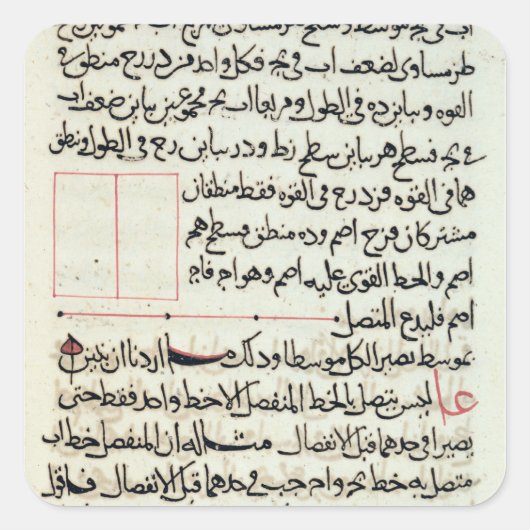 طر مساوى لضعف اب فى بج فكل واحد من د ر رح منطق فى
القوه ويباين ده فى الطول و مربعا اب بج مجموعين يباين ضعف اب
فى بج فسطح هر يباين سطح زط و در يباين رح فى الطول ومنطق
هما فى القوه فزد رح فى القوه فقط منطقان
مشتركان فزح اصم و ده منطق فسطح هح
اصم والخط القوى عليه اصم وهو اج فاج
اصم فليدع المتصل
بموسط يصير الكل موسطا وذلك ما اردنا ان نبين
عا ليس يتصل بالخط المنفصل الا خط واحد فقط حتى
يصيرا فى حدهما قبل الانفصال مثاله ان المنفصل خط اب
متصل به خط بج و اج جب فى حدهما قبل الانفصال فاقول